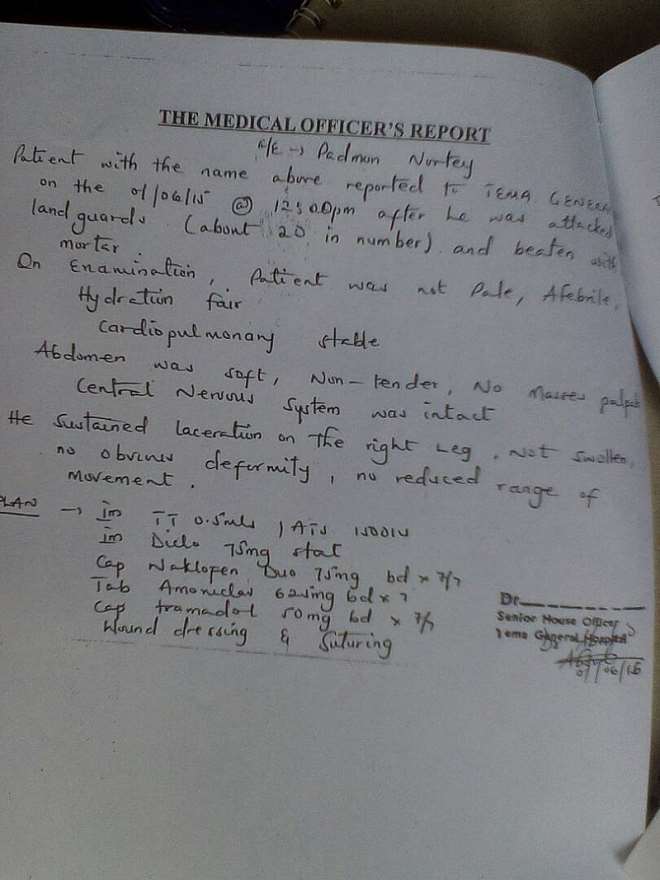 THE MEDICAL OFFICER'S REPORT
→ Padmon Nortey
Patient with the name above reported to TEMA GENERAL
on the 01/06/15 @ 12:00pm after he was attacked
landguards (about 20 in number) and beaten with
mortar.
On Examination, Patient was not Pale, Afebrile,
Hydration fair
Cardiopulmonary stable
Abdomen was soft, Non-tender, No Masses palpab
Central Nervous System was intact
He Sustained laceration on the right Leg, Not Swollen,
no obvious deformity, no reduced range of
movement.
PLAN → im TT 0.5mls, ATS 1500IU
im Diclo 75mg stat
Cap Naklofen Duo 75mg bd x 7/7
Tab Amoniclav 625mg bd x 7
Cap tramadol 50mg bd x 7/7
Wound dressing & Suturing
Dr.
Senior House Officer
Tema General Hospital
01/06/15